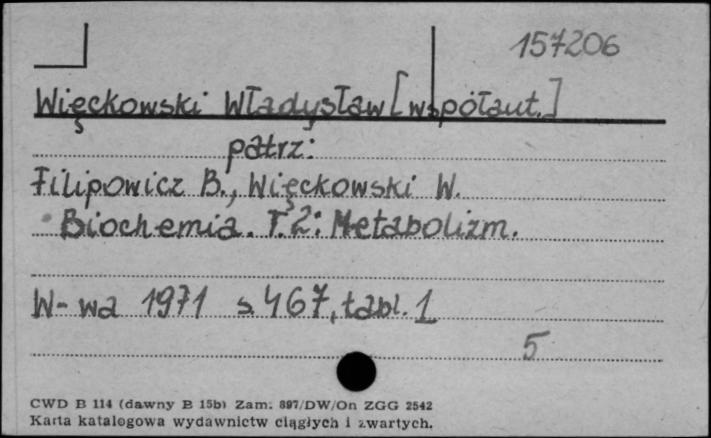 157206
Więckowski Władysław [współaut.]
patrz:
Filipowicz B., Więckowski W.
Biochemia. T. 2: Metabolizm.
W-wa 1971 s 467, tabl. 1
5
CWD B 114 (dawny B 15b) Zam. 897/DW/On ZGG 2542
Karta katalogowa wydawnictw ciągłych i zwartych.